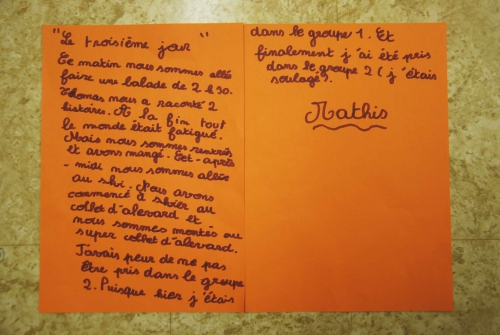 "Le troisième jour"
Ce matin nous sommes allé
faire une balade de 2 h 30.
Thomas nous a raconté 2
histoires. A la fin tout
le monde était fatigué.
Mais nous sommes rentrés
et avons mangé. Cet-après
-midi nous sommes allés
au ski. Nous avons
commencé à skier au
collet d'alevard et
nous sommes montés au
super collet d'alevard.
J'avais peur de ne pas
être pris dans le groupe
2. Puisque hier j'étais
dans le groupe 1. Et
finalement j'ai été pris
dans le groupe 2 (j'étais
soulagé).
Mathis